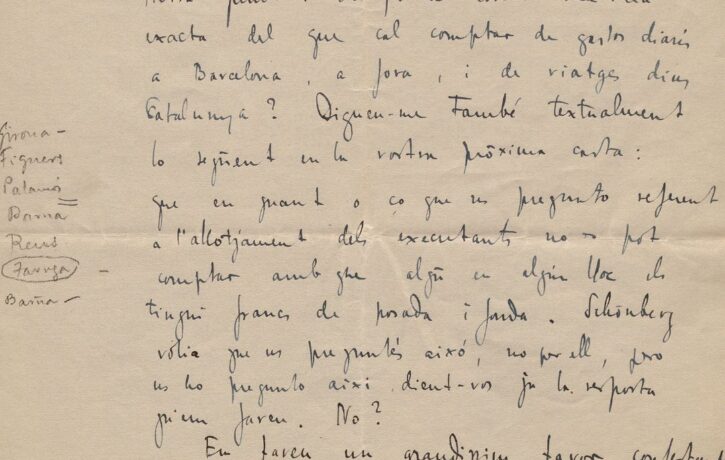 exacta del que cal comptar de gastos diaris
a Barcelona, a fora, i de viatges dins
Catalunya? Digueu-me també textualment
lo següent en la vostra pròxima carta:
que en quant a ço que us pregunto referent
a l'allotjament dels executants no es pot
comptar amb que algú en algún lloc els
tingui francs de posada i fonda. Schönberg
volia que us preguntés això, no per ell, però
us ho pregunto així dient-vos ja la resposta
faren. No?
Em fareu un grandíssim favor contestant
Girona -
Figueres
Palamós
Barna
Reus
Barna -